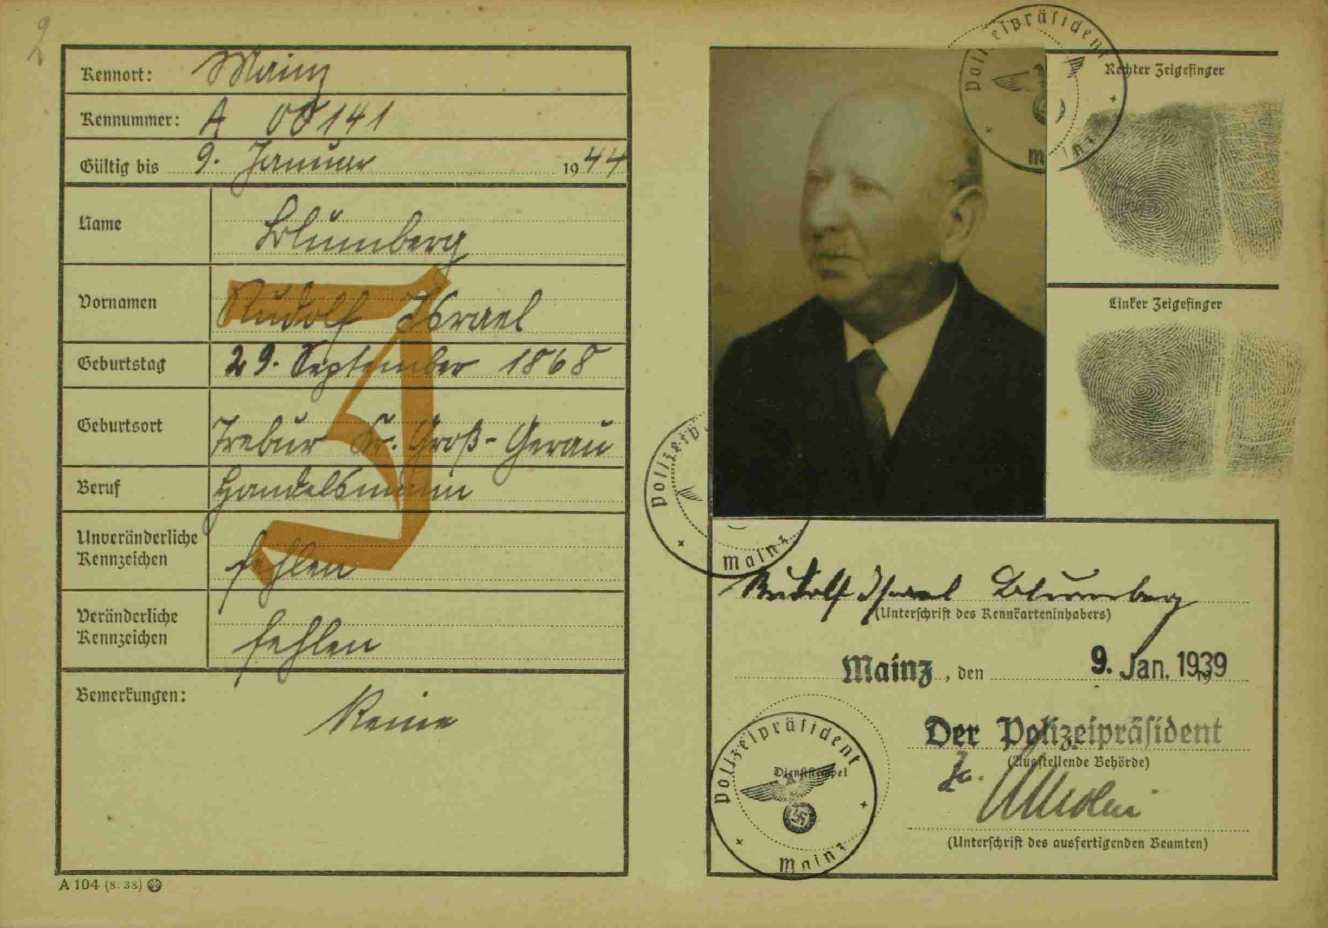 2
Kennort: Mainz
Kennummer: A 00141
Gültig bis 9. Januar 1944
Name Blumberg
Vornamen Rudolf Israel
Geburtstag 29. September 1868
Geburtsort Trebur Kr. Groß-Gerau
Beruf Handelsmann
Unveränderliche
Kennzeichen fehlen
Veränderliche
Kennzeichen fehlen
Bemerkungen: Keine
J
A 104 (8. 38)
Polizeipräsident
Mainz
Rechter Zeigefinger
Linker Zeigefinger
Polizeip
Mainz
Rudolf Israel Blumberg
(Unterschrift des Kennkarteninhabers)
Mainz, den 9. Jan. 1939
Der Polizeipräsident
(Ausstellende Behörde)
(Unterschrift des ausfertigenden Beamten)
Polizeipräsident
Dienststempel
Mainz